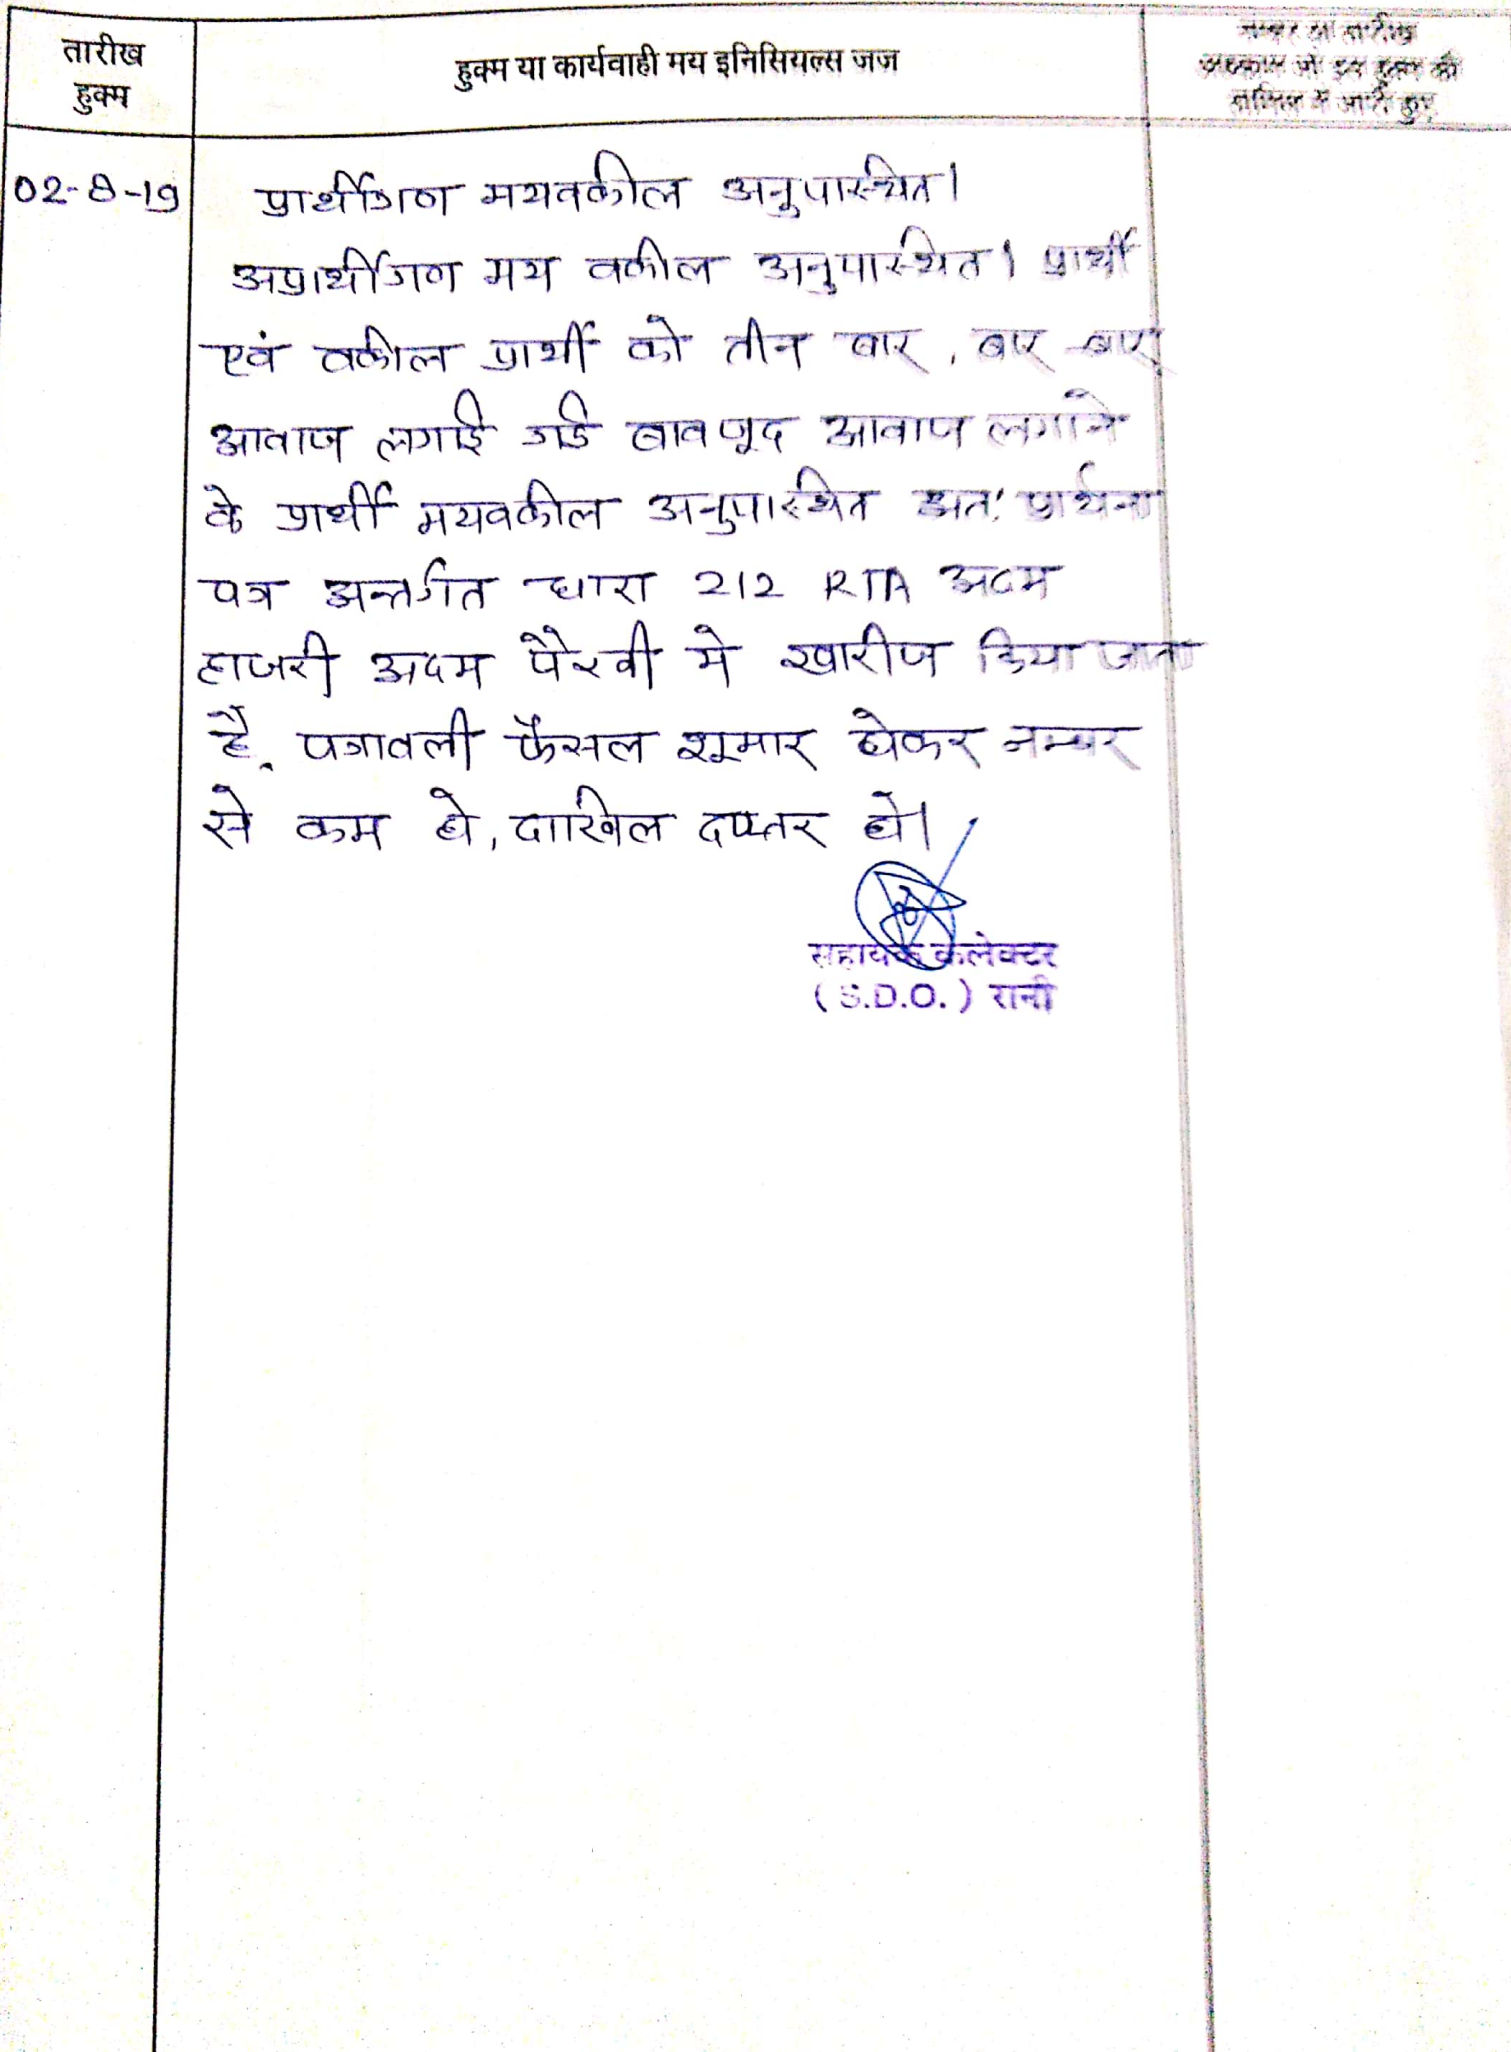 तारीख
हुक्म
हुक्म या कार्यवाही मय इनिसियल्स जज
नम्बर व तारीख
अहकाम जो इस हुक्म की
तामिल में जारी हुए
02-8-19
प्रार्थीगण मयवकील अनुपास्थित।
अप्रार्थीगण मय वकील अनुपास्थित। प्रार्थी
एवं वकील प्रार्थी को तीन बार, बार-बार
आवाज लगाई गई बावजूद आवाज लगाने
के प्रार्थी मयवकील अनुपास्थित अत: प्रार्थना
पत्र अन्तर्गत धारा 212 RTA अदम
हाजरी अदम पैरवी मे खारीज किया जाता
है, पत्रावली फैसल शूमार होकर नम्बर
से कम हो, दाखिल दफ्तर हो।
सहायक कलेक्टर
(S.D.O.) रानी